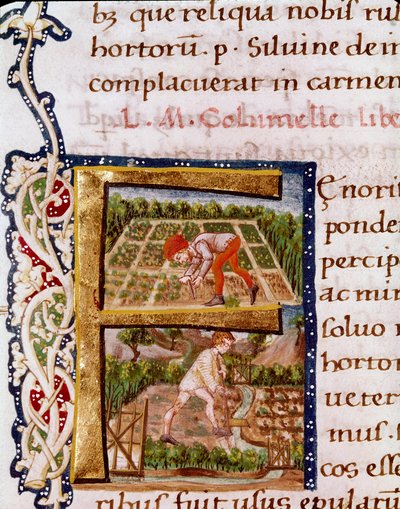 bꝫ que reliqua nobiſ ru
hortorũ. p. Siluine de in
complacuerat in carmen
L. M. Columelle libe
FEnoriſ
ponde
percip
ac mi
ſoluo
hortor
ueter
muſ.
coſ eſſe
ribuſ fuit uſuſ epularũ